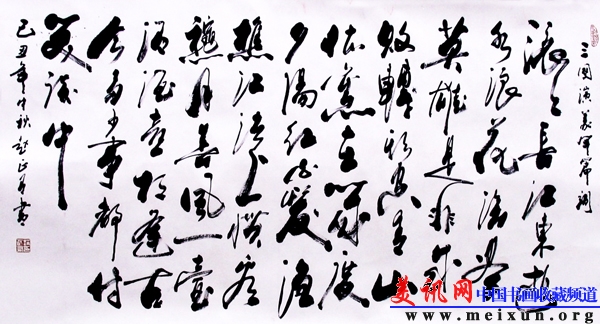 三国演義开篇词
滚々長江東逝
水浪花淘尽
英雄是非成
敗轉頭空青山
依舊在幾度
夕陽红白髮漁
樵江渚上慣看
秋月春風一壺
濁酒喜相逢古
今多少事都付
笑談中
己丑年中秋
美讯网 中国书画收藏频道
www.meixun.org